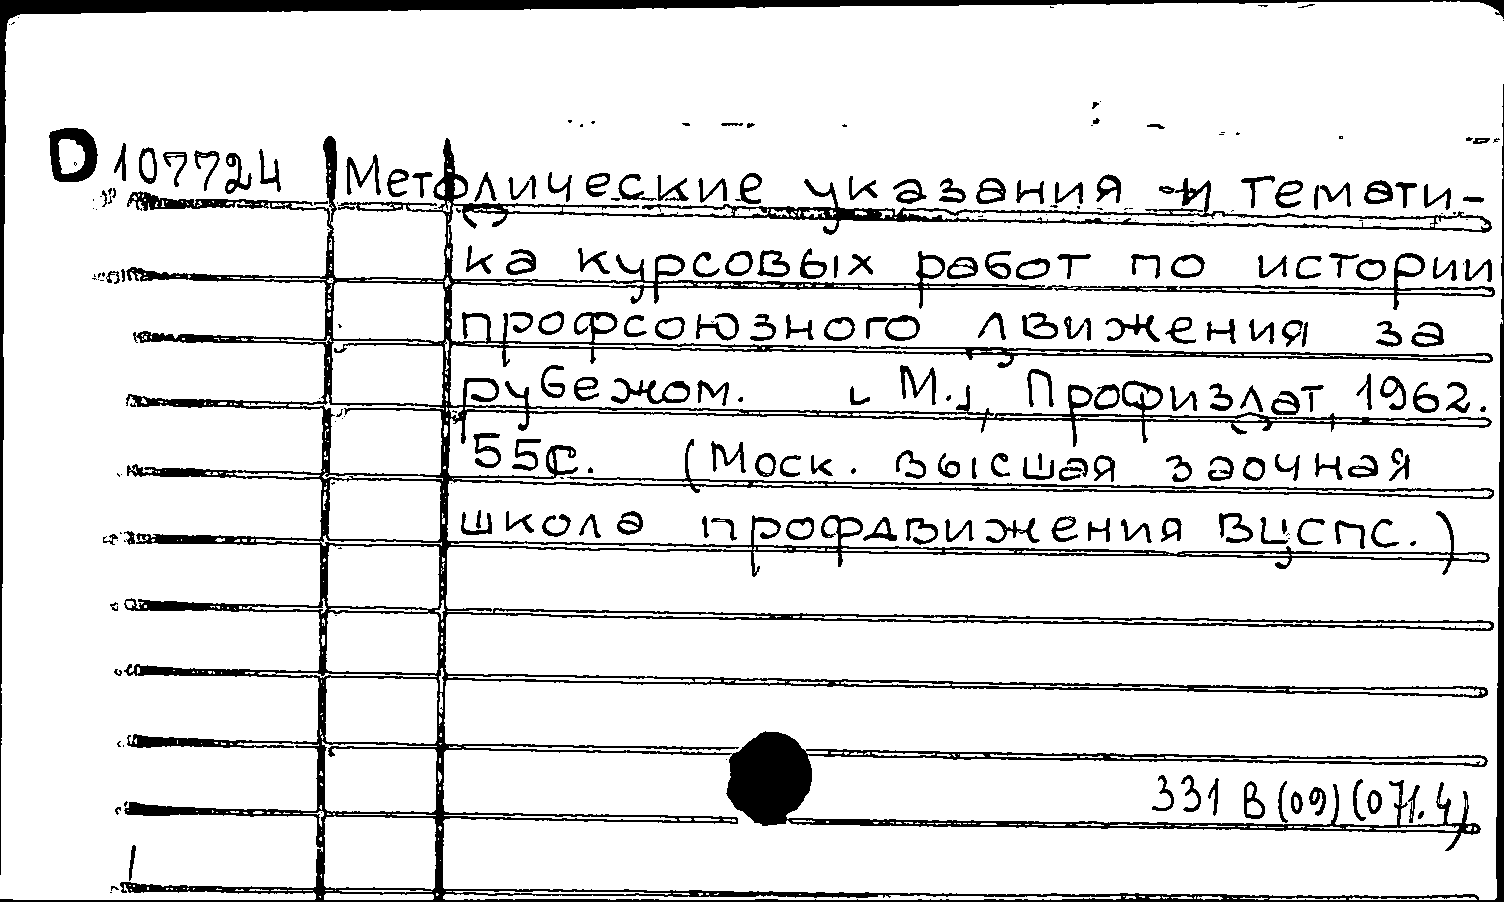 D 107724 Методические указания и темати-
ка курсовых работ по истории
профсоюзного движения за
рубежом. [М.], Профиздат, 1962.
55с. (Моск. высшая заочная
школа профдвижения ВЦСПС.)
331 В(09)(071.4)